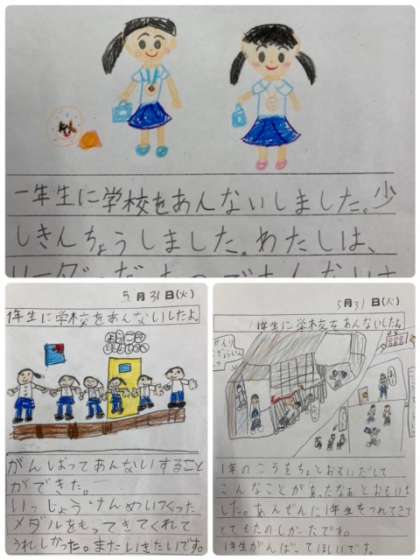 一年生に学校をあんないしました。少
しきんちょうしました。わたしは、
5月31日(火)
1年生に学校をあんないしたよ。
がんばってあんないすること
ができた。
いっしょうけんめいつくった
メダルをもってきてくれて
うれしかった。またいきたいです。
5月31(火)
1年生に学校をあんないしたよ。
1年のころをちょとおもいだして
こんなことがあったなぁとおもいま
した。あんぜんに1年生をつれてきて
とてもたのしかたです。
1年生がんばってほしいです。